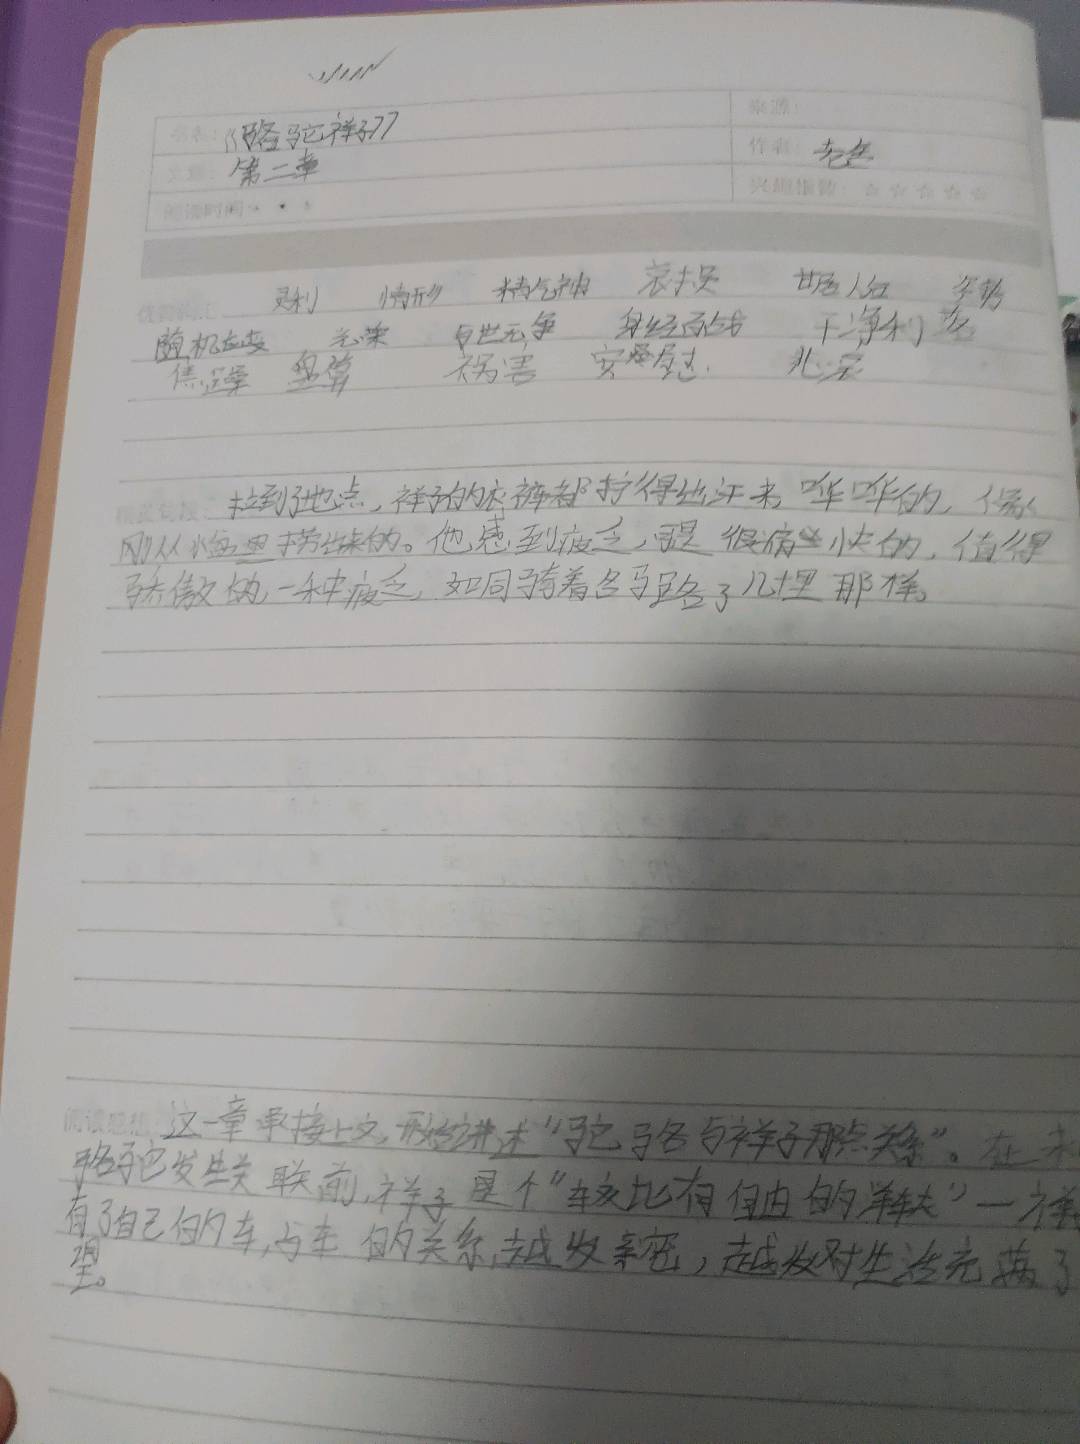 书名：《骆驼祥子》
来源：
文章：第二章
作者：老舍
阅读时间
兴趣指数：☆☆☆☆☆
灵利 情形 精气神
随机应变 与世无争 身经百战 干净利落
焦躁 盘算 祸害
精彩句段：拉到了地点，祥子的衣裤都拧得出汗来，哗哗的，像
刚从 捞出来的。他感到疲乏，可是很痛快的，值得
骄傲的，一种疲乏，如同骑着名马 了几 里那样。
阅读感想：这一章承接上文，开始讲述“驼骆与祥子那点关系”。在未
骆驼发生关联前，祥子是个“较比有自由的洋车夫”一祥
有了自己的车，与车的关系越发亲密，越发对生活充满了
望。